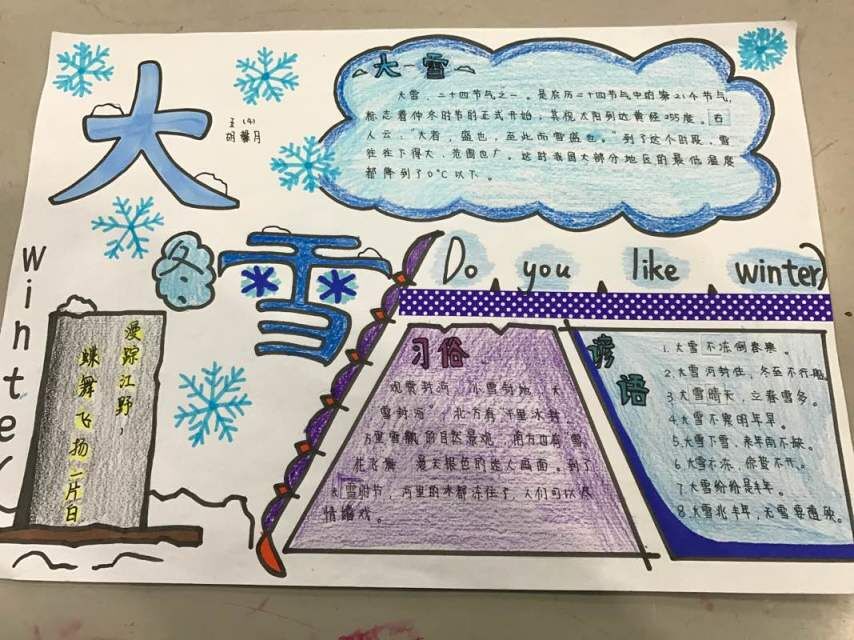 大
雪
五(4)
胡馨月
大雪
大雪，二十四节气之一。是农历二十四节气中的第21个节气，
标志着仲冬时节的正式开始；其视太阳到达黄经255度。古
人云："大者，盛也，至此而雪盛也。"到了这个时段，雪
往往下得大、范围也广。这时我国大部分地区的最低温度
都降到了0°C以下。
冬
winter
Do you like winter
爱踪江野，
蝶舞飞扬一片白
习俗
观赏封河 "小雪封地，大
雪封河"，北方有"千里冰封，
万里雪飘"的自然景观，南方也有"雪
花飞舞 漫天银色的迷人画面。到了
大雪时节，河里的冰都冻住了，人们可以尽
情嬉戏。
谚语
1.大雪不冻倒春寒。
2.大雪河封住，冬至不行船
3.大雪晴天，立春雪多。
4.大雪不寒明年旱。
5.大雪下雪，来年雨不缺。
6.大雪不冻，惊蛰不开。
7.大雪纷纷是丰年。
8.大雪兆丰年，无雪要遭殃。